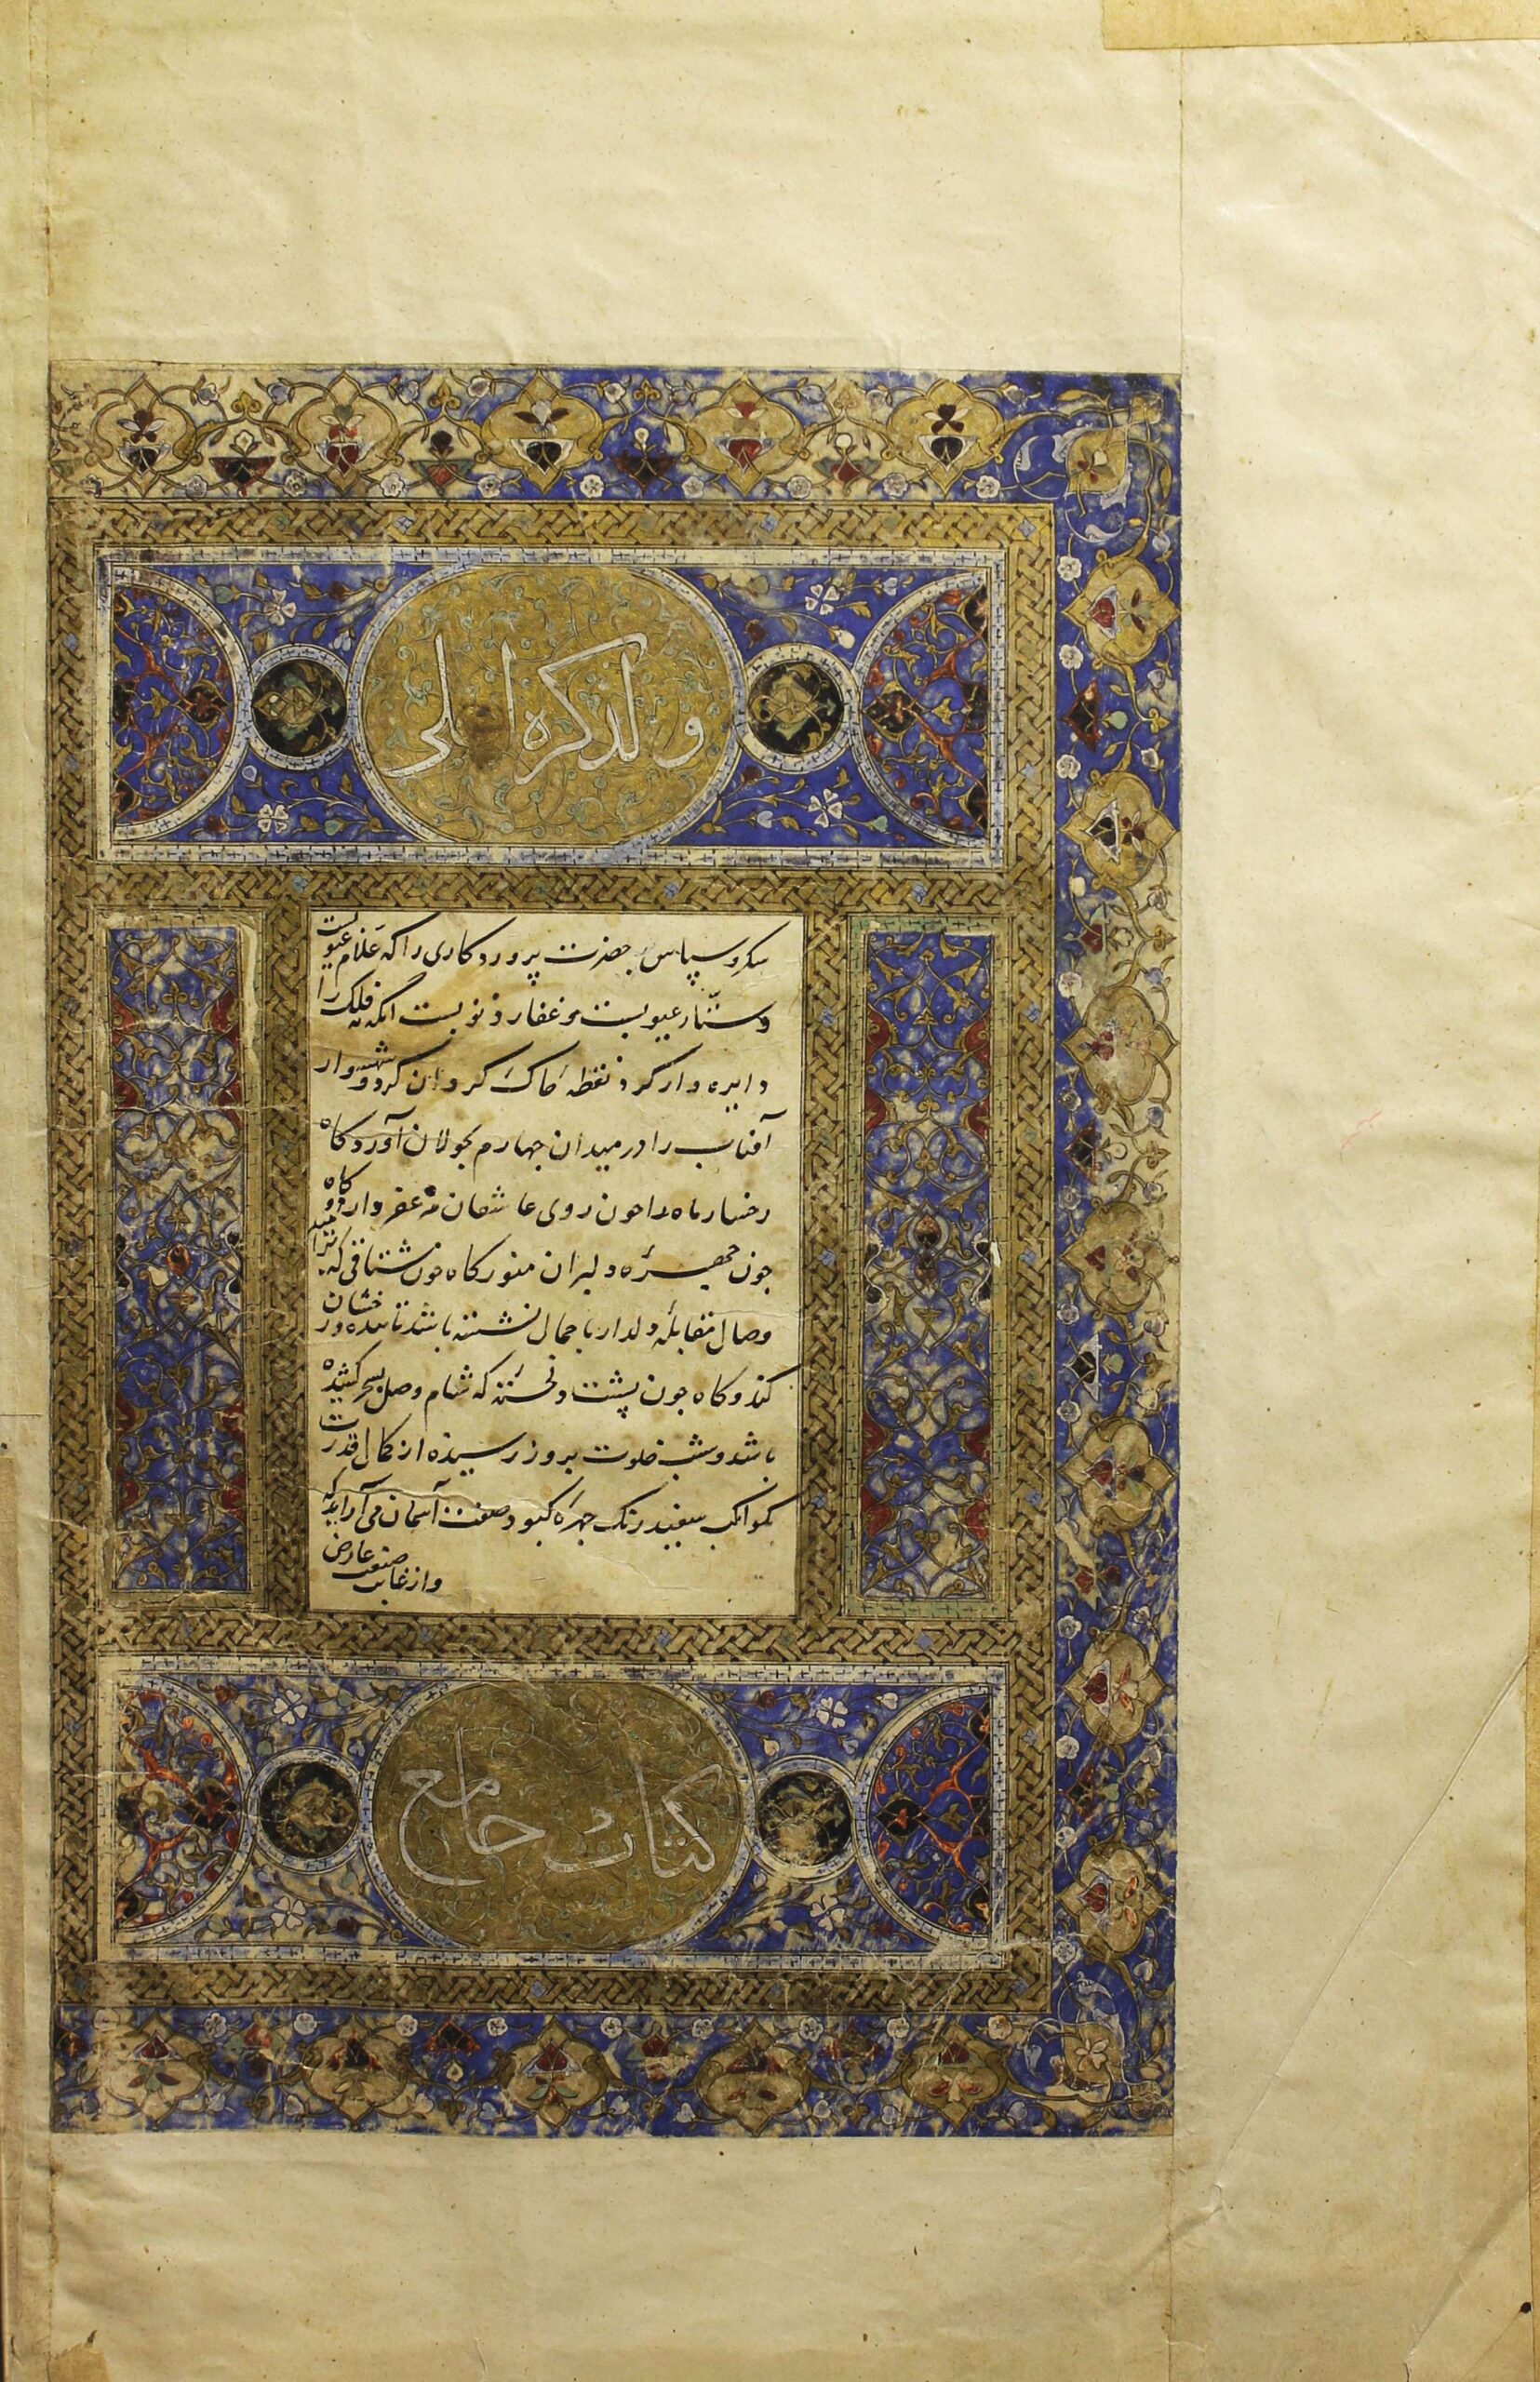 ولذکره اعلی
شکر و سپاس حضرت پروردکاری را که علام غیوبست
و ستّار عیوبست و غفار ذنوبست انکه نه فلک را
دایره وار کرد نقطهٔ خاک کردان کرد و شهسوار
آفتاب را در میدان چهارم بجولان آورد کاه
رخسار ماه را چون روی عاشقان مزعفر دارد و کاه
چون چهرهٔ دلبران منور کاه چون مشتاقی که
وصال مقابلهٔ دلدار با جمال نشسته باشد تابنده و رخشان
کند و کاه چون پشت دلخستهٔ که شام وصل بسحر کشیده
باشد و شب خلوت بروز رسیده از کمال قدرت
بکواکب سفید رنک چهرهٔ کبود صفت آسمان می آراید که
و از غایت صنعت عارض
کتاب جامع